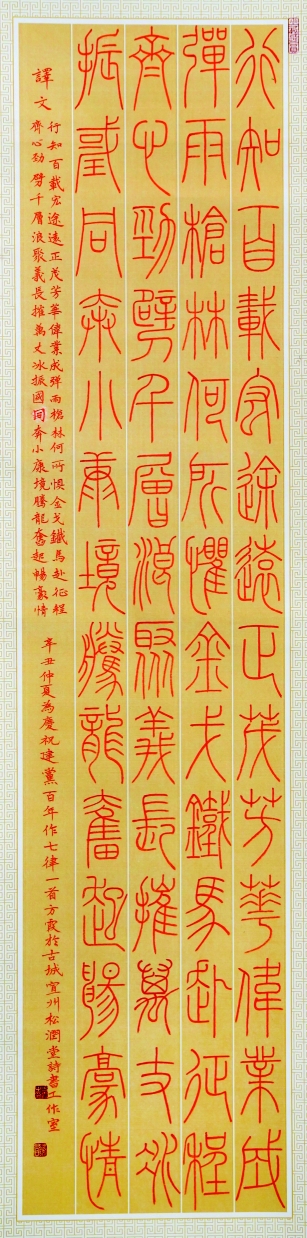 行知百載宏途遠正茂芳華偉業成
彈雨槍林何所懼金戈鐵馬赴征程
齊心勁劈千層浪聚義長摧萬丈冰
振國同奔小康境騰龍奮起暢豪情
譯文
行知百載宏途遠正茂芳華偉業成彈雨槍林何所懼金戈鐵馬赴征程
齊心勁劈千層浪聚義長摧萬丈冰振國同奔小康境騰龍奮起暢豪情
辛丑仲夏為慶祝建黨百年作七律一首方霞於古城宣州松潤堂詩書工作室